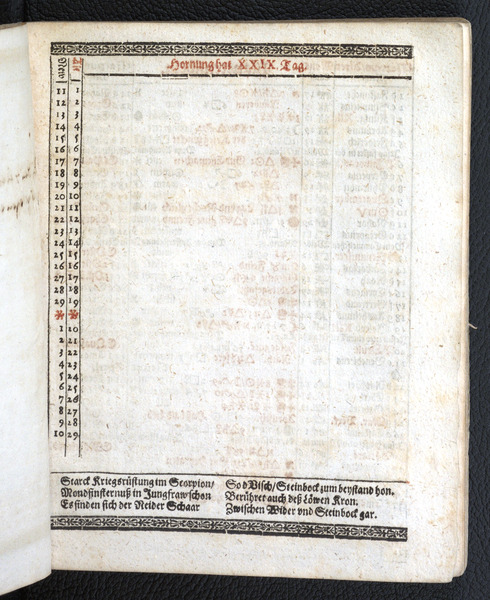 Hornung hat XXIX. Tag.
11 1
12 2
13 3
14 4
15 5
16 6
17 7
18 8
19 9
20 10
21 11
22 12
23 13
24 14
25 15
26 16
27 17
28 18
29 19
1 20
2 21
3 22
4 23
5 24
6 25
7 26
8 27
9 28
10 29
Starck Kriegsrüstung im Scorpion/
Mondfinsternuß in Jungfraw schon
Es finden sich der Neider Schaar
So d Visch/Steinbock zum beystand hon.
Berühret auch deß Löwen Kron.
Zwischen Wider vnd Steinbock gar.